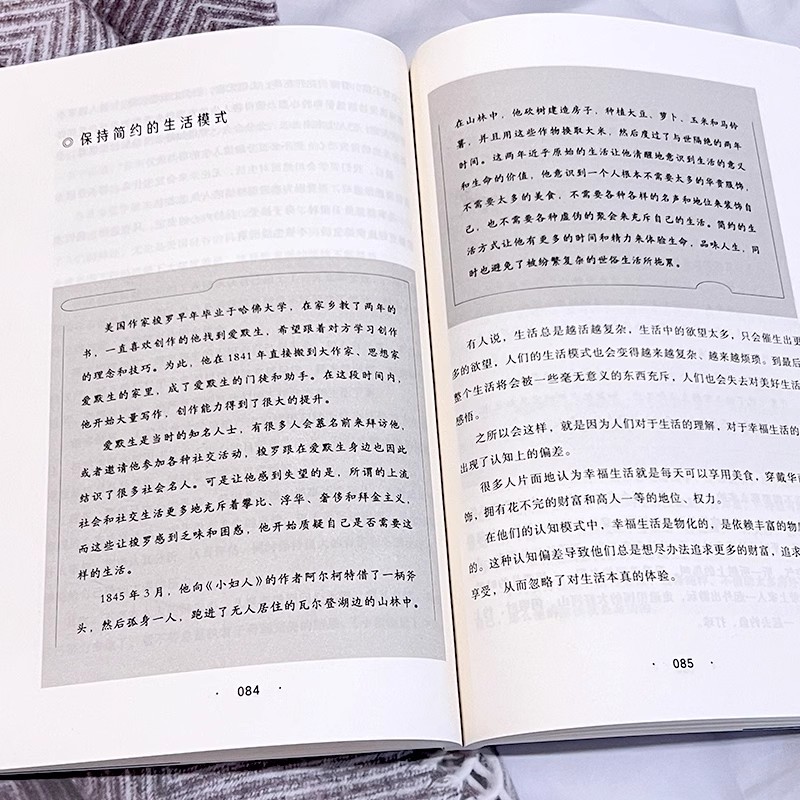 ◎保持简约的生活模式
美国作家梭罗早年毕业于哈佛大学，在家乡教了两年的
书，一直喜欢创作的他找到爱默生，希望跟着对方学习创作
的理念和技巧。为此，他在1841年直接搬到大作家、思想家
爱默生的家里，成了爱默生的门徒和助手。在这段时间内，
他开始大量写作，创作能力得到了很大的提升。
爱默生是当时的知名人士，有很多人会慕名前来拜访他，
或者邀请他参加各种社交活动，梭罗跟在爱默生身边也因此
结识了很多社会名人。可是让他感到失望的是，所谓的上流
社会和社交生活更多地充斥着攀比、浮华、奢侈和拜金主义，
而这些让梭罗感到乏味和困惑，他开始质疑自己是否需要这
样的生活。
1845年3月，他向《小妇人》的作者阿尔柯特借了一柄斧
头，然后孤身一人，跑进了无人居住的瓦尔登湖边的山林中。
· 084 ·
在山林中，他砍树建造房子，种植大豆、萝卜、玉米和马铃
薯，并且用这些作物换取大米，然后度过了与世隔绝的两年
时间。这两年近乎原始的生活让他清醒地意识到生活的意义
和生命的价值，他意识到一个人根本不需要太多的华贵服饰，
不需要太多的美食，不需要各种各样的名声和地位来装饰自
己，也不需要各种虚伪的聚会来充斥自己的生活。简约的生
活方式让他有更多的时间和精力来体验生命，品味人生，同
时也避免了被纷繁复杂的世俗生活所拖累。
有人说，生活总是越活越复杂，生活中的欲望太多，只会催生出更
多的欲望，人们的生活模式也会变得越来越复杂、越来越烦琐。到最后
整个生活将会被一些毫无意义的东西充斥，人们也会失去对美好生活
感悟。
之所以会这样，就是因为人们对于生活的理解，对于幸福生活的
出现了认知上的偏差。
很多人片面地认为幸福生活就是每天可以享用美食，穿戴华丽
饰，拥有花不完的财富和高人一等的地位、权力。
在他们的认知模式中，幸福生活是物化的，是依赖丰富的物
的。这种认知偏差导致他们总是想尽办法追求更多的财富，追求
享受，从而忽略了对生活本真的体验。
· 085 ·